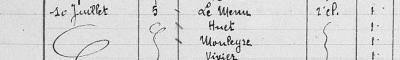 10 Juillet 5 Le Menu 2e cl. 1
Huet 1
Mouleyre 1
Vivier